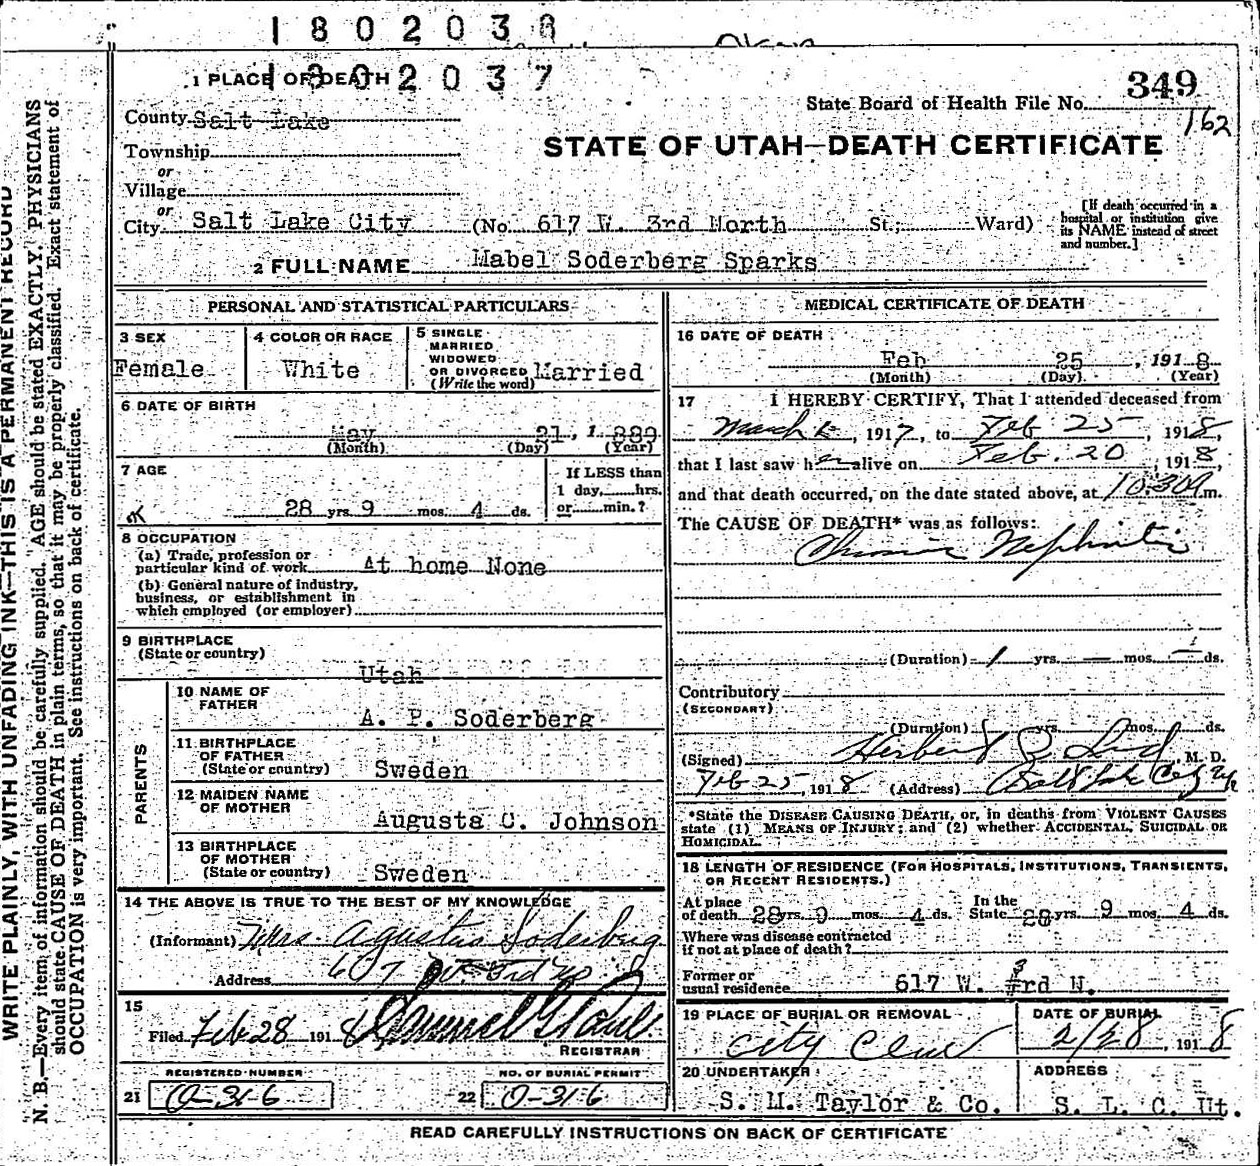 1802038
1802037
1 PLACE OF DEATH
349
State Board of Health File No.
162
County Salt Lake
STATE OF UTAH—DEATH CERTIFICATE
Township
or
Village
or
City Salt Lake City (No. 617 W. 3rd North St.; Ward)
[If death occurred in a
hospital or institution give
its NAME instead of street
and number.]
2 FULL NAME Mabel Soderberg Sparks
PERSONAL AND STATISTICAL PARTICULARS
3 SEX
Female
4 COLOR OR RACE
White
5 SINGLE
MARRIED
WIDOWED
OR DIVORCED
(Write the word) Married
6 DATE OF BIRTH
May 21, 1889
(Month) (Day) (Year)
7 AGE
28 yrs. 9 mos. 4 ds.
If LESS than
1 day, hrs.
or min.?
8 OCCUPATION
(a) Trade, profession or
particular kind of work At home None
(b) General nature of industry,
business, or establishment in
which employed (or employer)
9 BIRTHPLACE
(State or country)
Utah
PARENTS
10 NAME OF
FATHER
A. P. Soderberg
11 BIRTHPLACE
OF FATHER
(State or country) Sweden
12 MAIDEN NAME
OF MOTHER
Augusta C. Johnson
13 BIRTHPLACE
OF MOTHER
(State or country) Sweden
14 THE ABOVE IS TRUE TO THE BEST OF MY KNOWLEDGE
(Informant) Mrs. Agusta Soderburg
Address 3rd no
15
Filed Feb 28 1918
REGISTRAR
REGISTERED NUMBER
21 0-316
NO. OF BURIAL PERMIT
22 0-316
MEDICAL CERTIFICATE OF DEATH
16 DATE OF DEATH
Feb 25, 1918
(Month) (Day) (Year)
17 I HEREBY CERTIFY, That I attended deceased from
March, 1917, to Feb 25, 1918,
that I last saw her alive on Feb. 20, 1918,
and that death occurred, on the date stated above, at 10:30 m.
The CAUSE OF DEATH* was as follows:
Chronic Nephritis
(Duration) 1 yrs. — mos. — ds.
Contributory
(SECONDARY)
(Duration) yrs. mos. ds.
(Signed) Herbert M. D.
Feb 25, 1918 (Address) Salt Lake City
*State the DISEASE CAUSING DEATH, or, in deaths from VIOLENT CAUSES
state (1) MEANS OF INJURY; and (2) whether ACCIDENTAL, SUICIDAL OR
HOMICIDAL.
18 LENGTH OF RESIDENCE (FOR HOSPITALS, INSTITUTIONS, TRANSIENTS,
OR RECENT RESIDENTS.)
At place
of death 28 yrs. 9 mos. 4 ds.
In the
State 28 yrs. 9 mos. 4 ds.
Where was disease contracted
if not at place of death?
Former or
usual residence 617 W. 3rd N.
19 PLACE OF BURIAL OR REMOVAL
City Cem
DATE OF BURIAL
2/28, 1918
20 UNDERTAKER
S. M. Taylor & Co.
ADDRESS
S. L. C. Ut.
READ CAREFULLY INSTRUCTIONS ON BACK OF CERTIFICATE
WRITE PLAINLY, WITH UNFADING INK—THIS IS A PERMANENT RECORD
N. B.—Every item of information should be carefully supplied. AGE should be stated EXACTLY. PHYSICIANS
should state CAUSE OF DEATH in plain terms, so that it may be properly classified. Exact statement of
OCCUPATION is very important. See instructions on back of certificate.